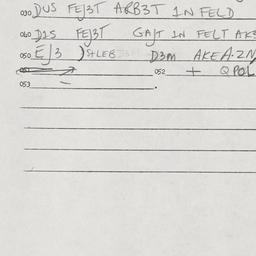 030 DUS FEJ3T ARB3T IN FELD
040 D1S FEJ3T GAJT IN FELT AK3
050 EJ3 )StLEB D3M AKEA.ZN
052 + QPOL
053 — .